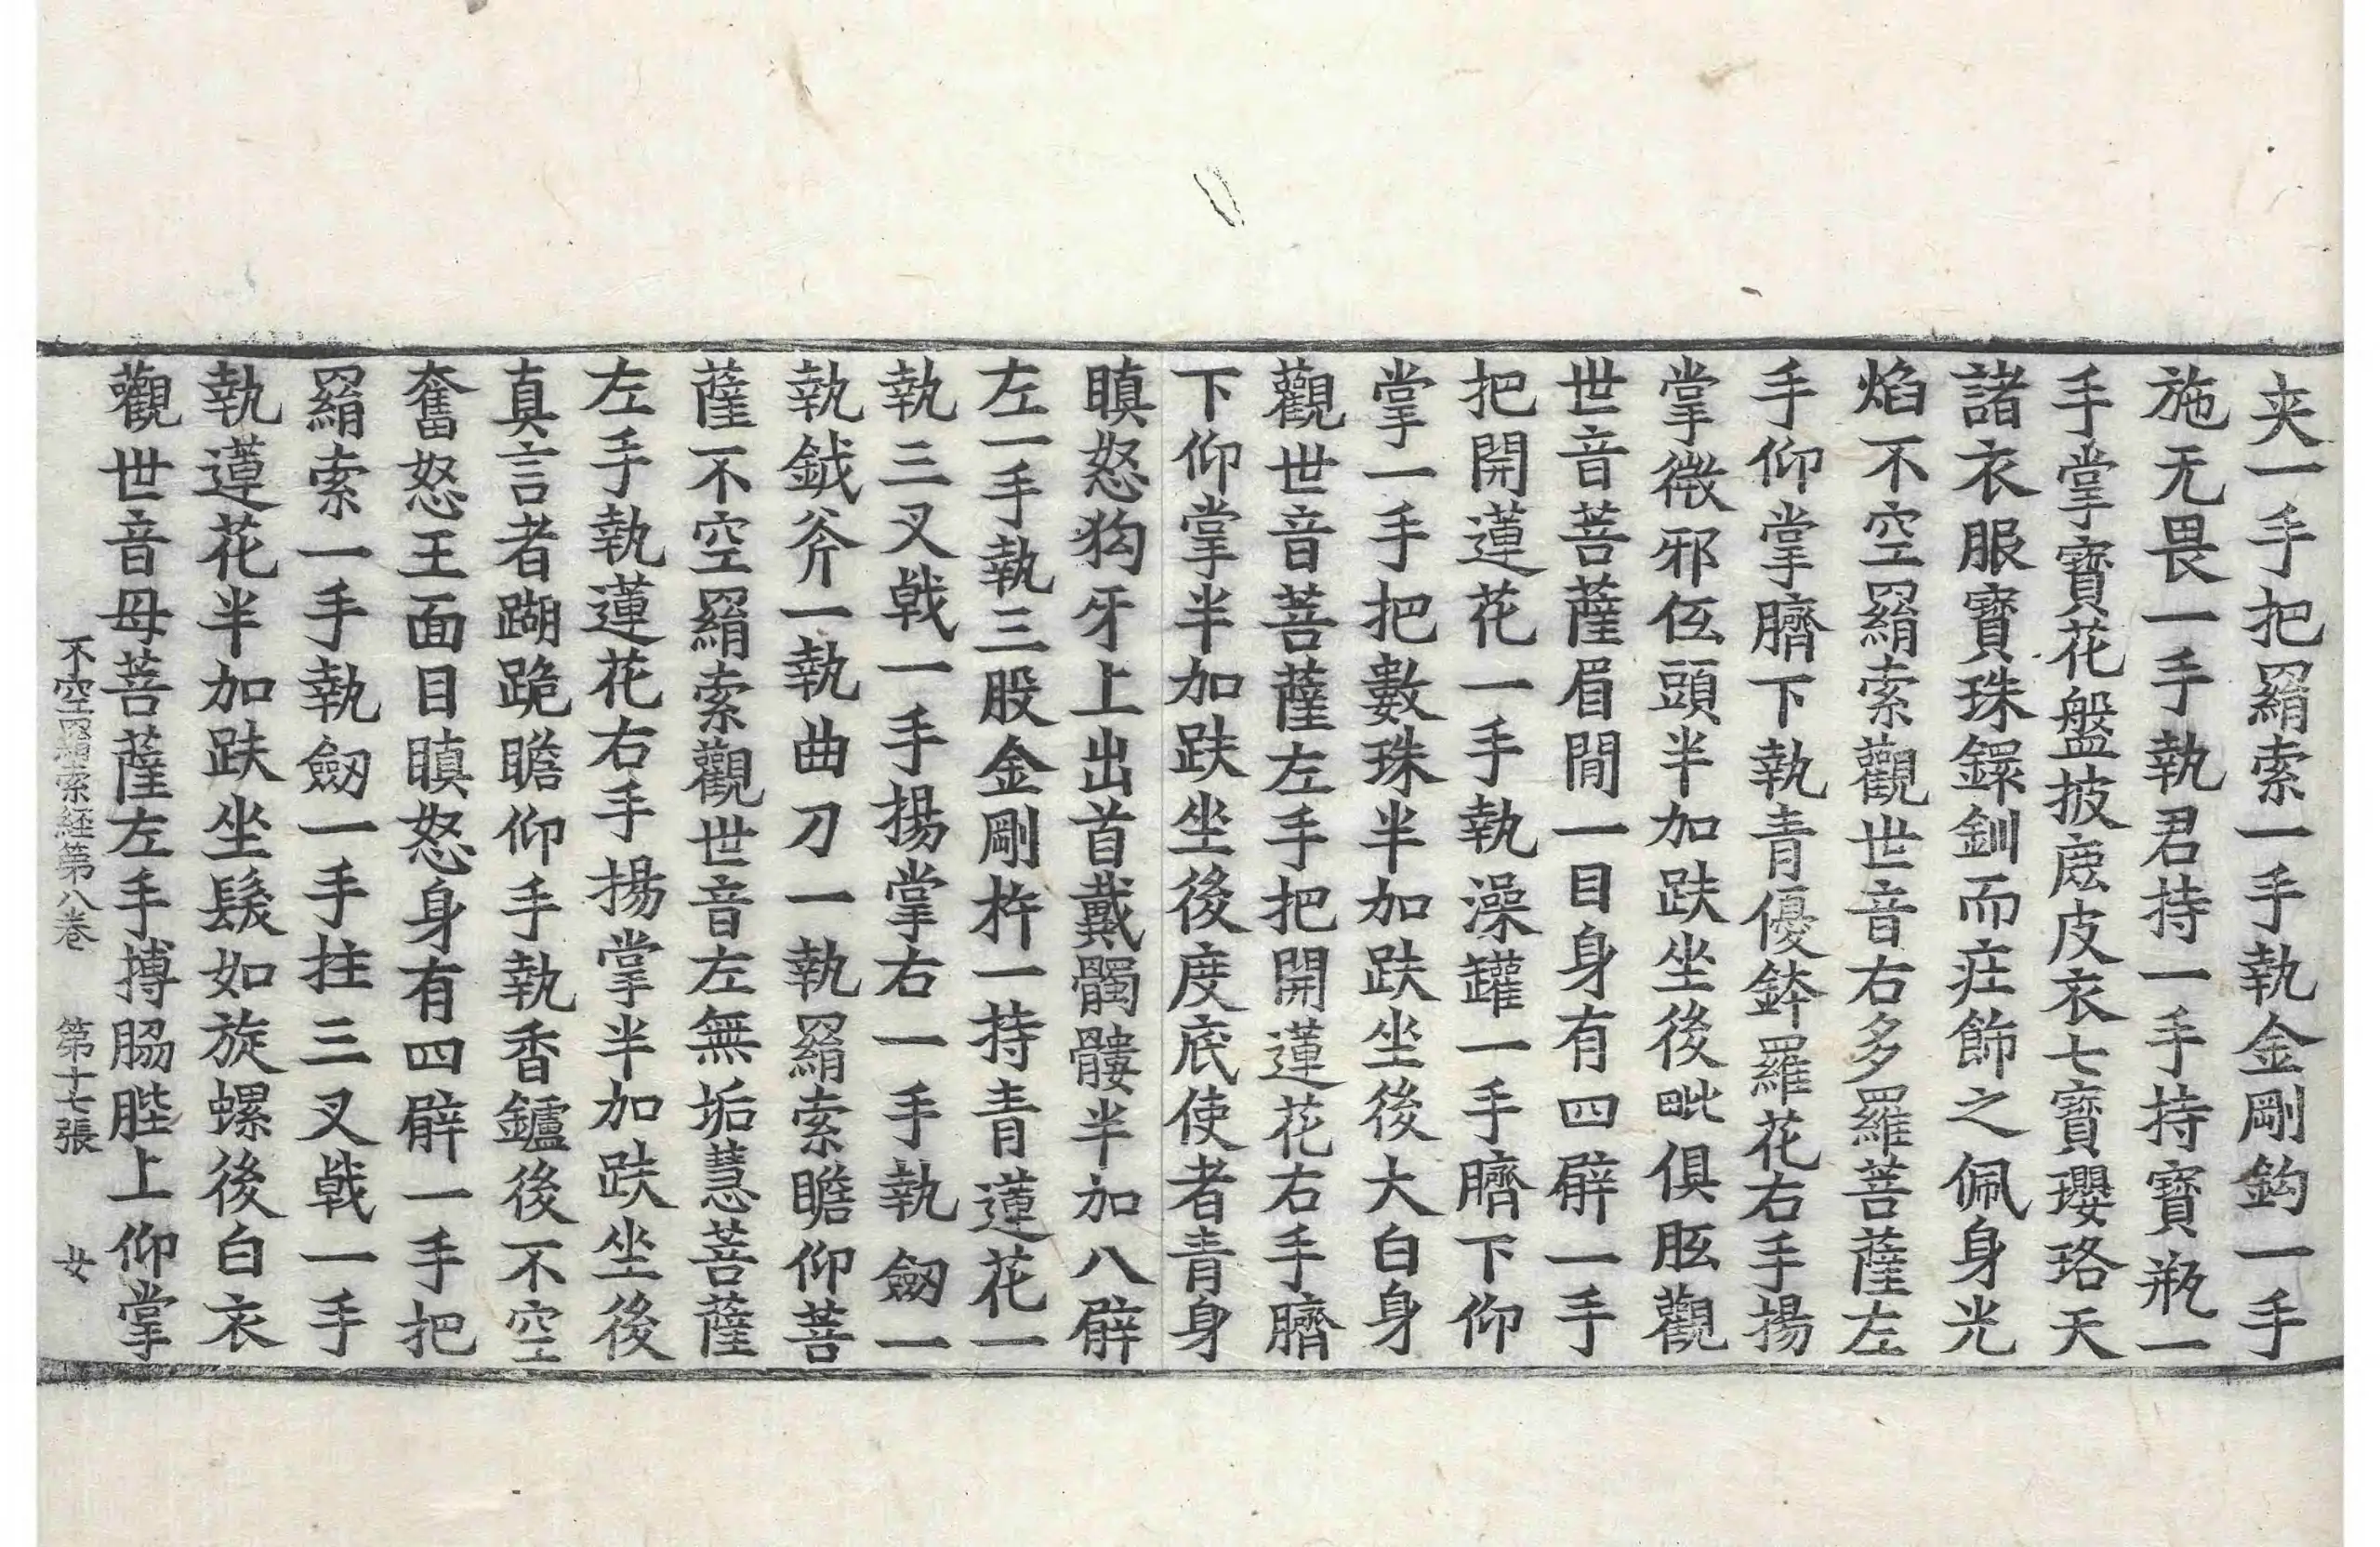 夾一手把羂索一手執金剛鉤一手
施无畏一手執君持一手持寶瓶一
手掌寶花盤披鹿皮衣七寶瓔珞天
諸衣服寶珠鐶釧而莊飾之佩身光
焰不空羂索觀世音右多羅菩薩左
手仰掌臍下執青優鉢羅花右手揚
掌微邪伍頭半加趺坐後毗俱胝觀
世音菩薩眉間一目身有四臂一手
把開蓮花一手執澡罐一手臍下仰
掌一手把數珠半加趺坐後大白身
觀世音菩薩左手把開蓮花右手臍
下仰掌半加趺坐後度底使者青身
瞋怒狗牙上出首戴髑髏半加八臂
左一手執三股金剛杵一持青蓮花一
執三叉戟一手揚掌右一手執劒一
執鉞斧一執曲刀一執羂索瞻仰菩
薩不空羂索觀世音左無垢慧菩薩
左手執蓮花右手揚掌半加趺坐後
真言者蹦跪瞻仰手執香鑪後不空
奮怒王面目瞋怒身有四臂一手把
羂索一手執劒一手拄三叉戟一手
執蓮花半加趺坐髮如旋螺後白衣
觀世音母菩薩左手摶脇䏶上仰掌
不空羂索経第八巻　第十七張　女